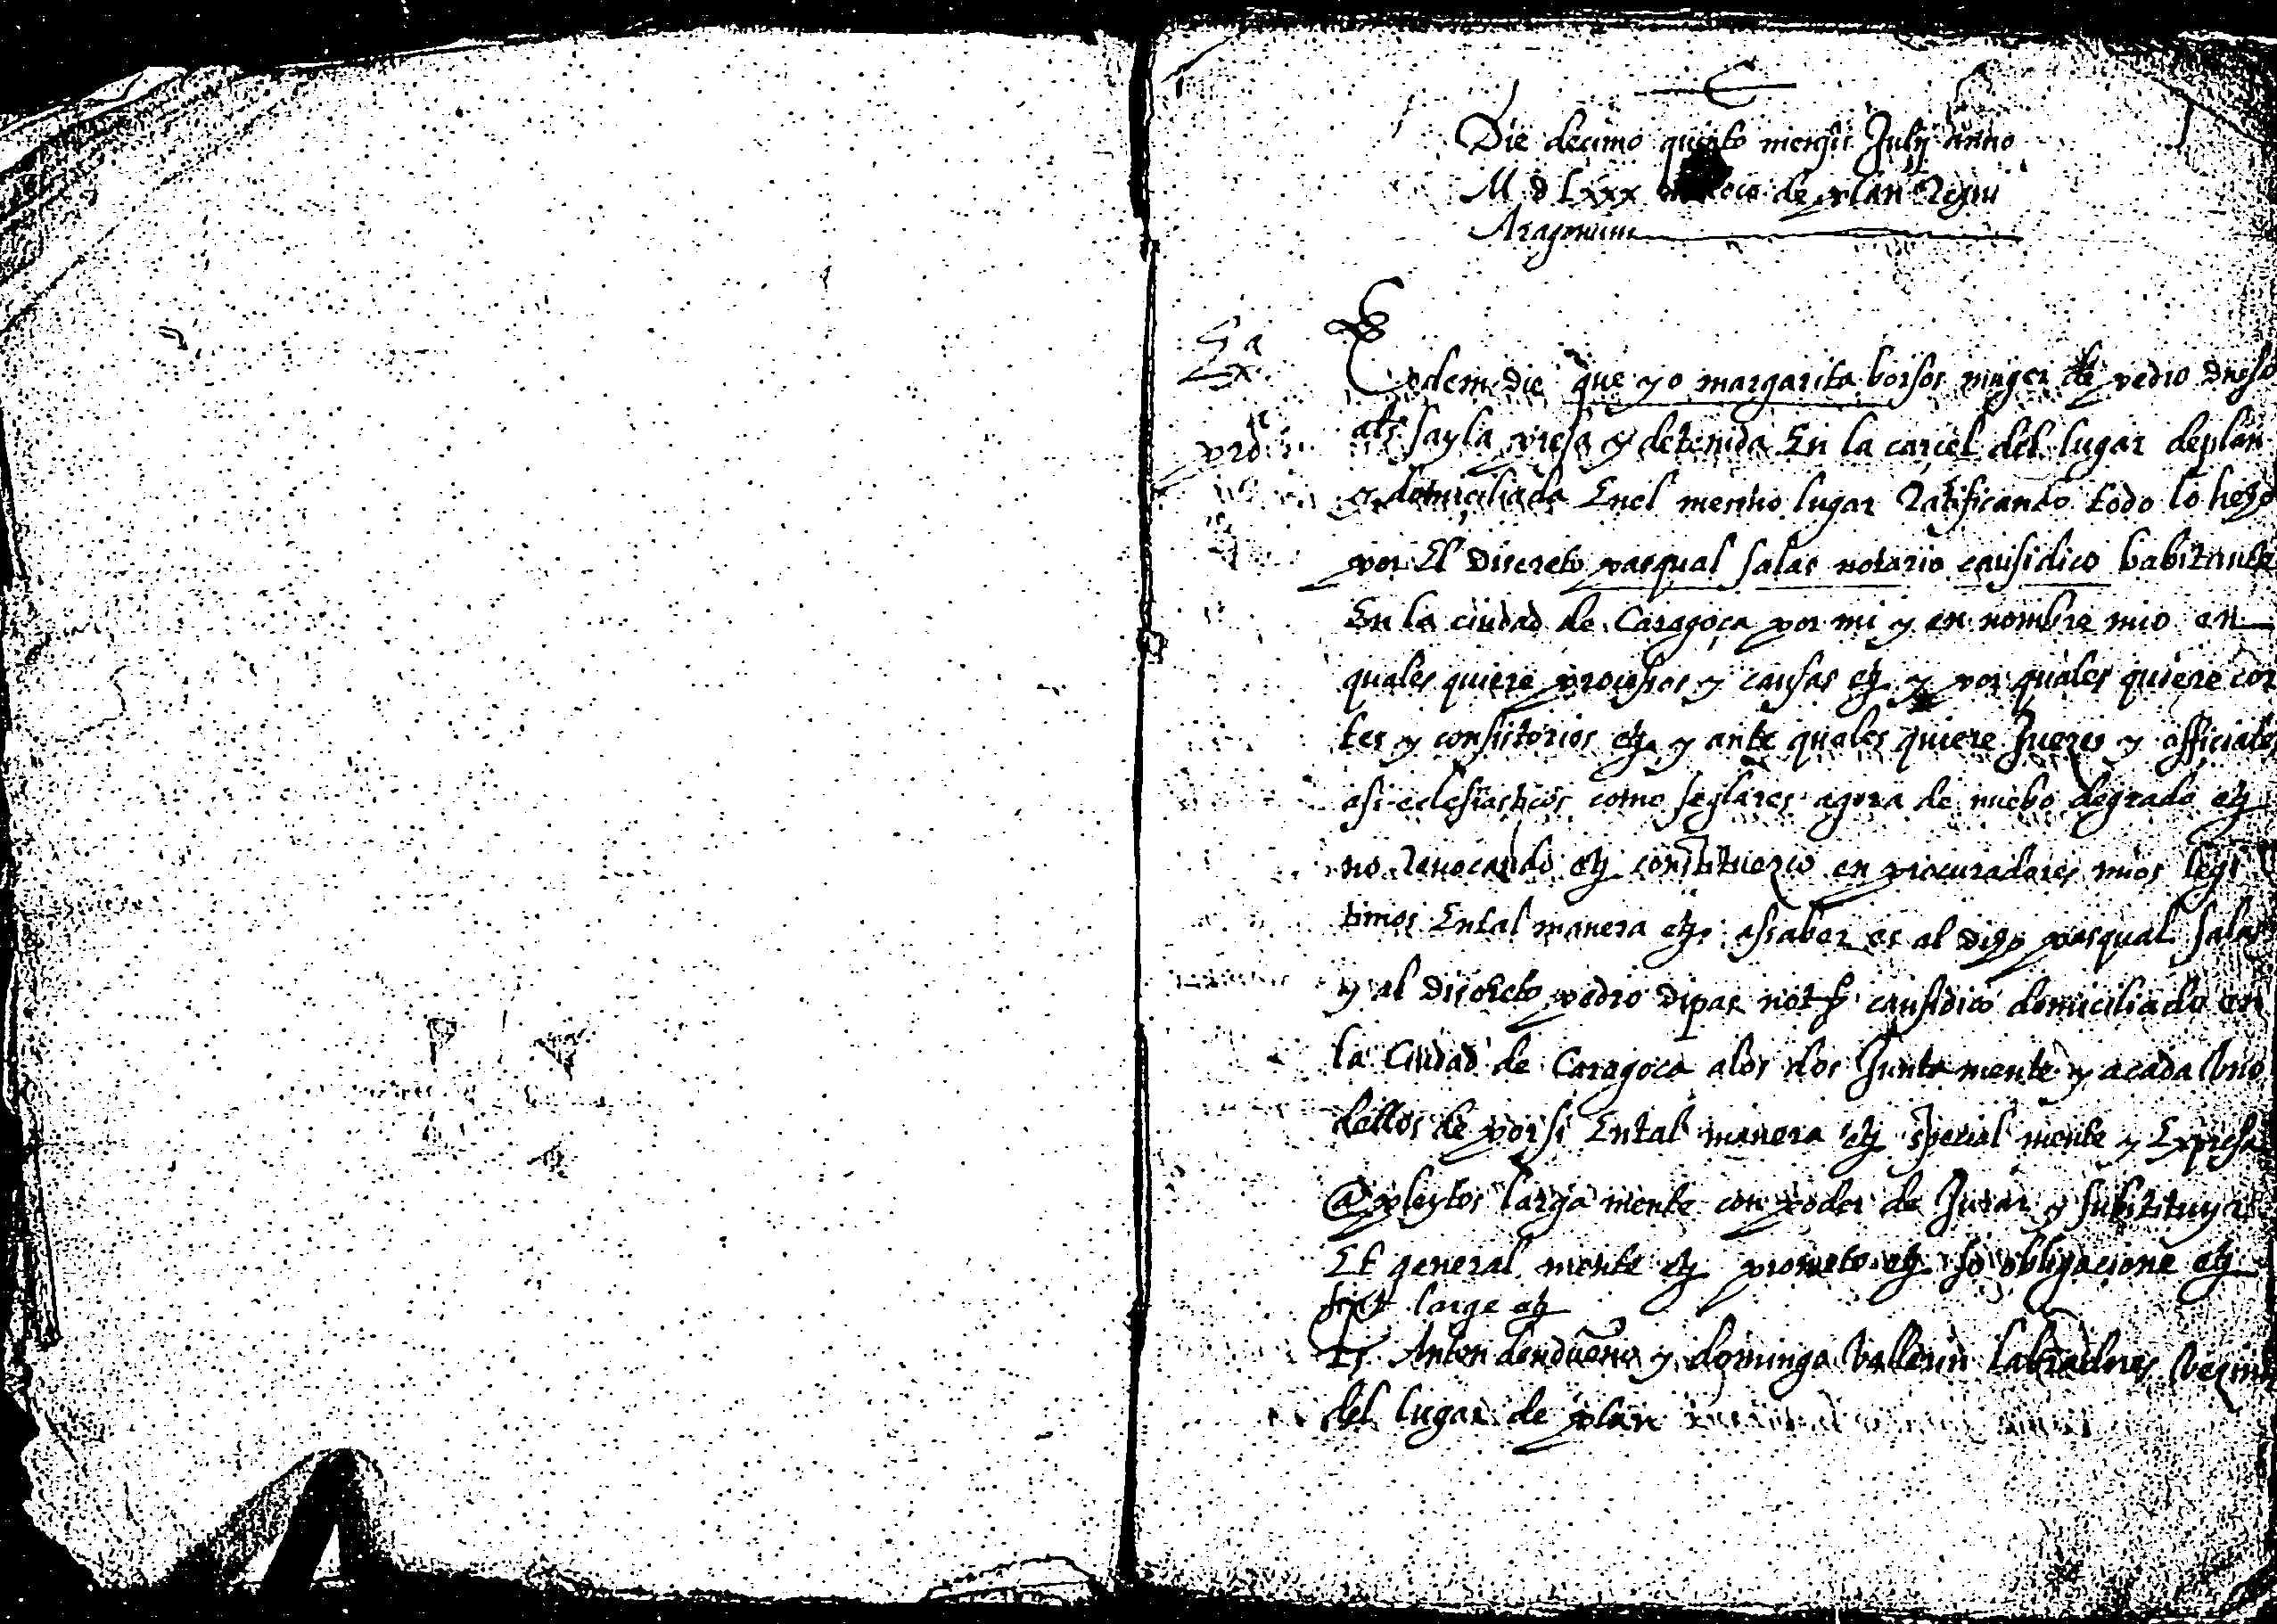 Die decimo quinto mensis Julij anno
M D Lxxx loco de plan Regni
Aragonum
Ex.ª
Eodem die que yo margarita borsos muger de pedro
als sayla presa y detenida En la carcel del lugar de plan
y domiciliada Enel mesmo lugar Ratificando todo lo hecho
por El discreto pasqual salas notario causidico habitante
En la ciudad de Caragoça por mi y en nombre mio en
quales quiere processos y causas etz y por quales quiere cor
tes y consistorios etz y ante quales quiere Juezes y officiales
asi eclesiasticos como seglares agora de nuebo degrado etz
no Revocando etz constituezco en procuradores mios legi
timos Ental manera etz asaber es al dicho pasqual salas
y al discreto pedro dipas not causidico domiciliado en
la Ciudad de Caragoca alos dos Junta mente y acada Vno
dellos de porsi Ental manera etz special mente y Expresa
@ pleytos larga mente con poder de Jurar y substituyr
Et general mente etz prometo etz so obligacione etz
fiat large etz
Ts Anton dendueno y domingo Vallerin labradores Vezinos
del lugar de plan